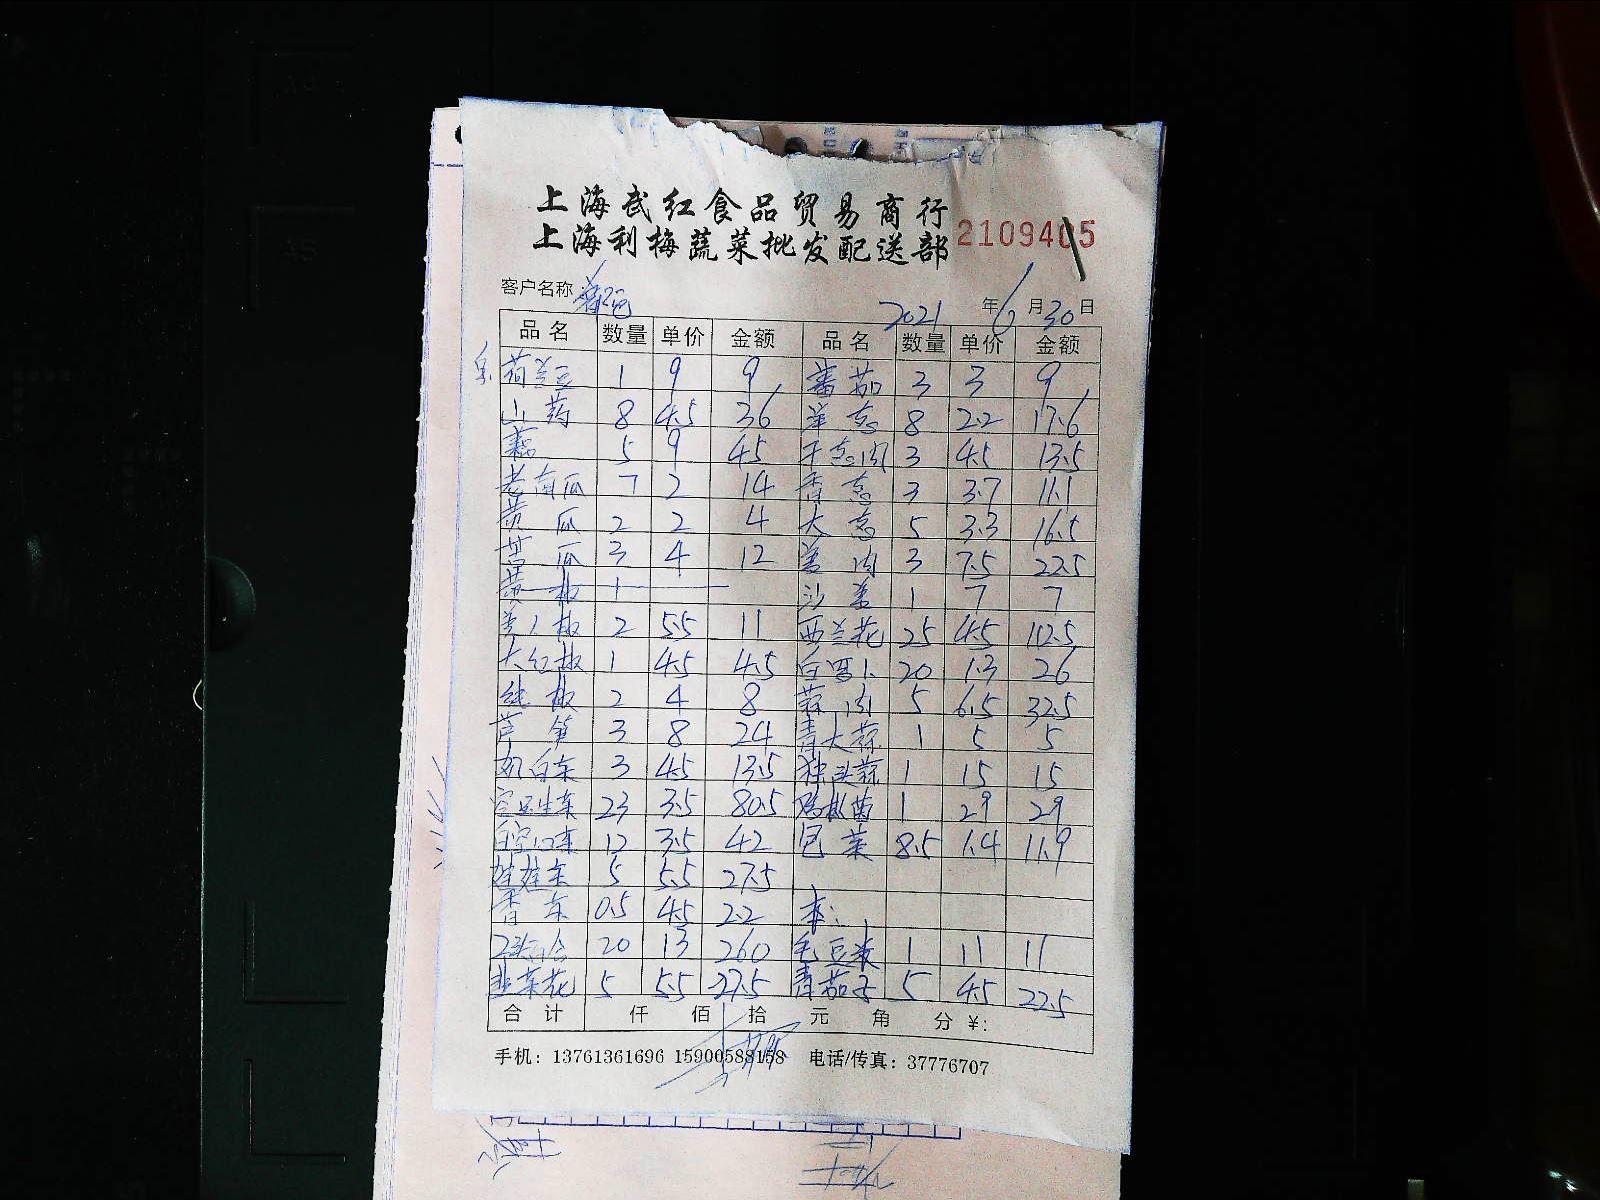 上海武红食品贸易商行
上海利梅蔬菜批发配送部 2109405
客户名称 2021 年 6 月 30 日
品名 数量 单价 金额 品名 数量 单价 金额
荷兰豆 1 9 9 番茄 3 3 9
山药 8 4.5 36 洋葱 8 2.2 17.6
藕 5 9 45 干葱肉 3 4.5 13.5
老南瓜 7 2 14 香葱 3 3.7 11.1
黄瓜 2 2 4 大葱 5 3.3 16.5
苦瓜 3 4 12 姜肉 3 7.5 22.5
黄椒 1 沙姜 1 7 7
美人椒 2 5.5 11 西兰花 25 4.5 112.5
大红椒 1 4.5 4.5 白 20 1.3 26
纯椒 2 4 8 蒜肉 5 6.5 32.5
芦笋 3 8 24 青大蒜 1 5 5
奶白菜 3 4.5 13.5 独头蒜 1 15 15
生菜 23 3.5 80.5 鸡枞菌 1 29 29
12 3.5 42 包菜 8.5 1.4 11.9
娃娃菜 5 5.5 27.5
香菜 0.5 4.5 2.2
百合 20 13 260 毛豆 1 11 11
韭菜花 5 5.5 27.5 青茄子 5 4.5 22.5
合计 仟 佰 拾 元 角 分 ¥:
手机: 13761361696 15900588158 电话/传真: 37776707